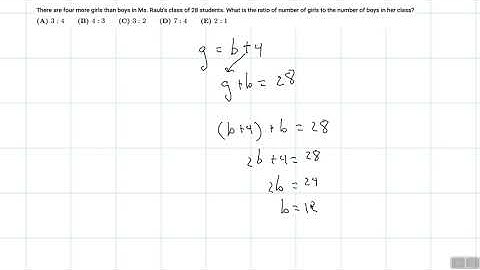 There are four more girls than boys in Ms. Raub's class of 28 students. What is the ratio of number of girls to the number of boys in her class?
(A) 3 : 4 (B) 4 : 3 (C) 3 : 2 (D) 7 : 4 (E) 2 : 1
g = b+4
g+b = 28
(b+4) + b = 28
2b +4 = 28
2b = 24
b = 12